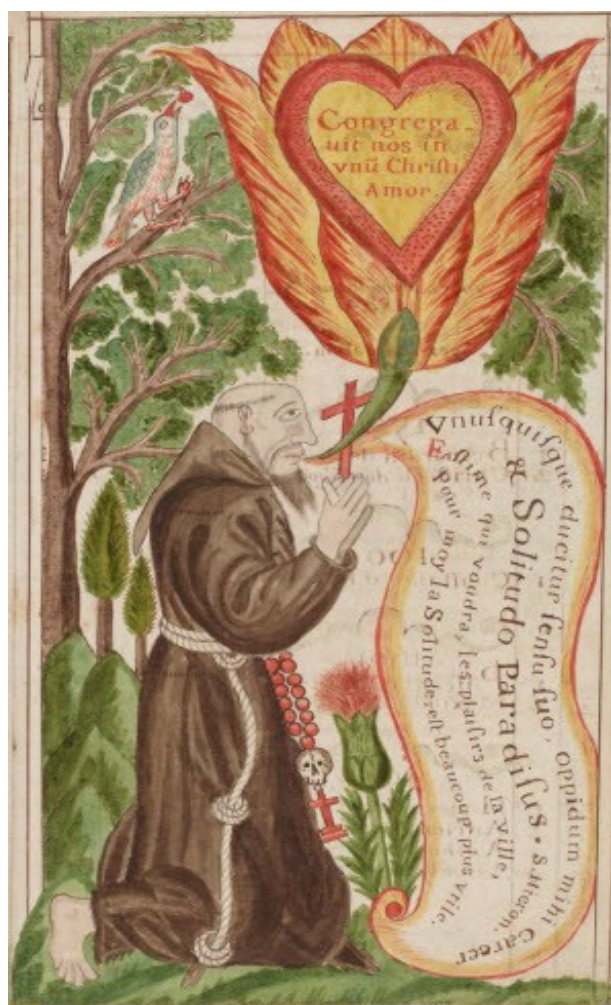 Congrega-
uit nos in
vnū Christi
Amor.
Vnusquisque ducitur sensu suo, oppidum mihi Carcer
& Solitudo Paradisus. S. Hieron.
Estime qui voudra, les plaisirs de la ville,
Pour moy la Solitude, est beaucoup plus vtile.